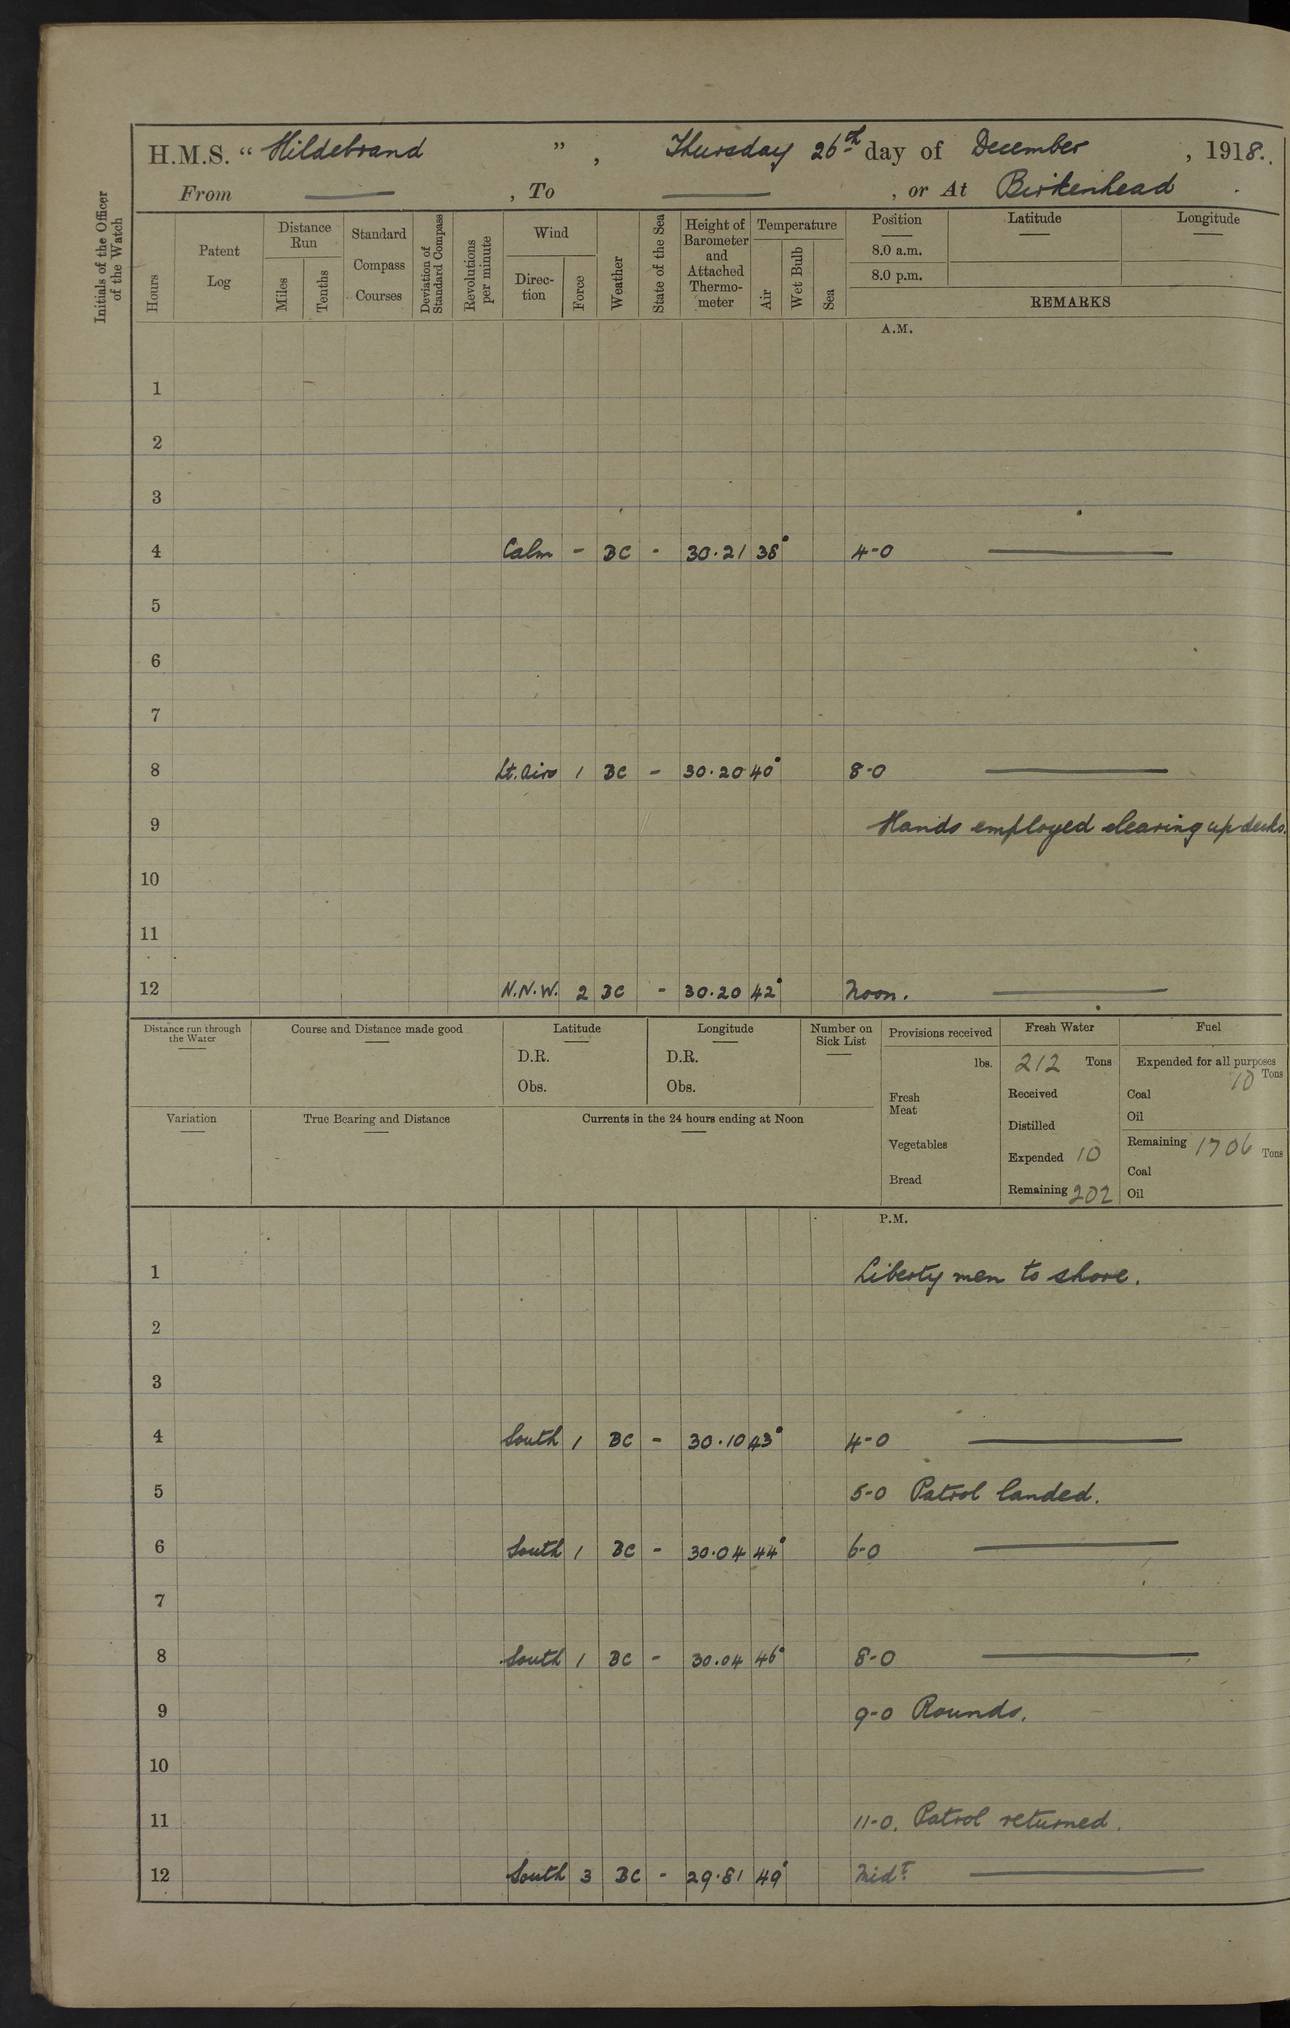 H.M.S. “ Hildebrand ” , Thursday 26th day of December , 1918.
From —— , To —— , or At Birkenhead
Initials of the Officer of the Watch
Hours
Patent Log
Distance Run
Miles
Tenths
Standard Compass Courses
Deviation of Standard Compass
Revolutions per minute
Wind
Direc-tion
Force
Weather
State of the Sea
Height of Barometer and Attached Thermo-meter
Temperature
Air
Wet Bulb
Sea
Position Latitude Longitude
8.0 a.m.
8.0 p.m.
REMARKS
A.M.
1
2
3
4 Calm - BC - 30.21 38° 4-0 ——
5
6
7
8 Lt. airs 1 BC - 30.20 40° 8-0 ——
9 Hands employed clearing up decks.
10
11
12 N.N.W. 2 BC - 30.20 42° Noon. ——
Distance run through the Water
Course and Distance made good
Latitude
D.R.
Obs.
Longitude
D.R.
Obs.
Number on Sick List
Provisions received
lbs.
Fresh Meat
Vegetables
Bread
Fresh Water
212 Tons
Received
Distilled
Expended 10
Remaining 202
Fuel
Expended for all purposes
10 Tons
Coal
Oil
Remaining 1706 Tons
Coal
Oil
Variation
True Bearing and Distance
Currents in the 24 hours ending at Noon
P.M.
1 Liberty men to shore.
2
3
4 South 1 BC - 30.10 43° 4-0 ——
5 5-0 Patrol landed.
6 South 1 BC - 30.04 44° 6-0 ——
7
8 South 1 BC - 30.04 46° 8-0 ——
9 9-0 Rounds.
10
11 11-0. Patrol returned.
12 South 3 BC - 29.81 49° Midt. ——